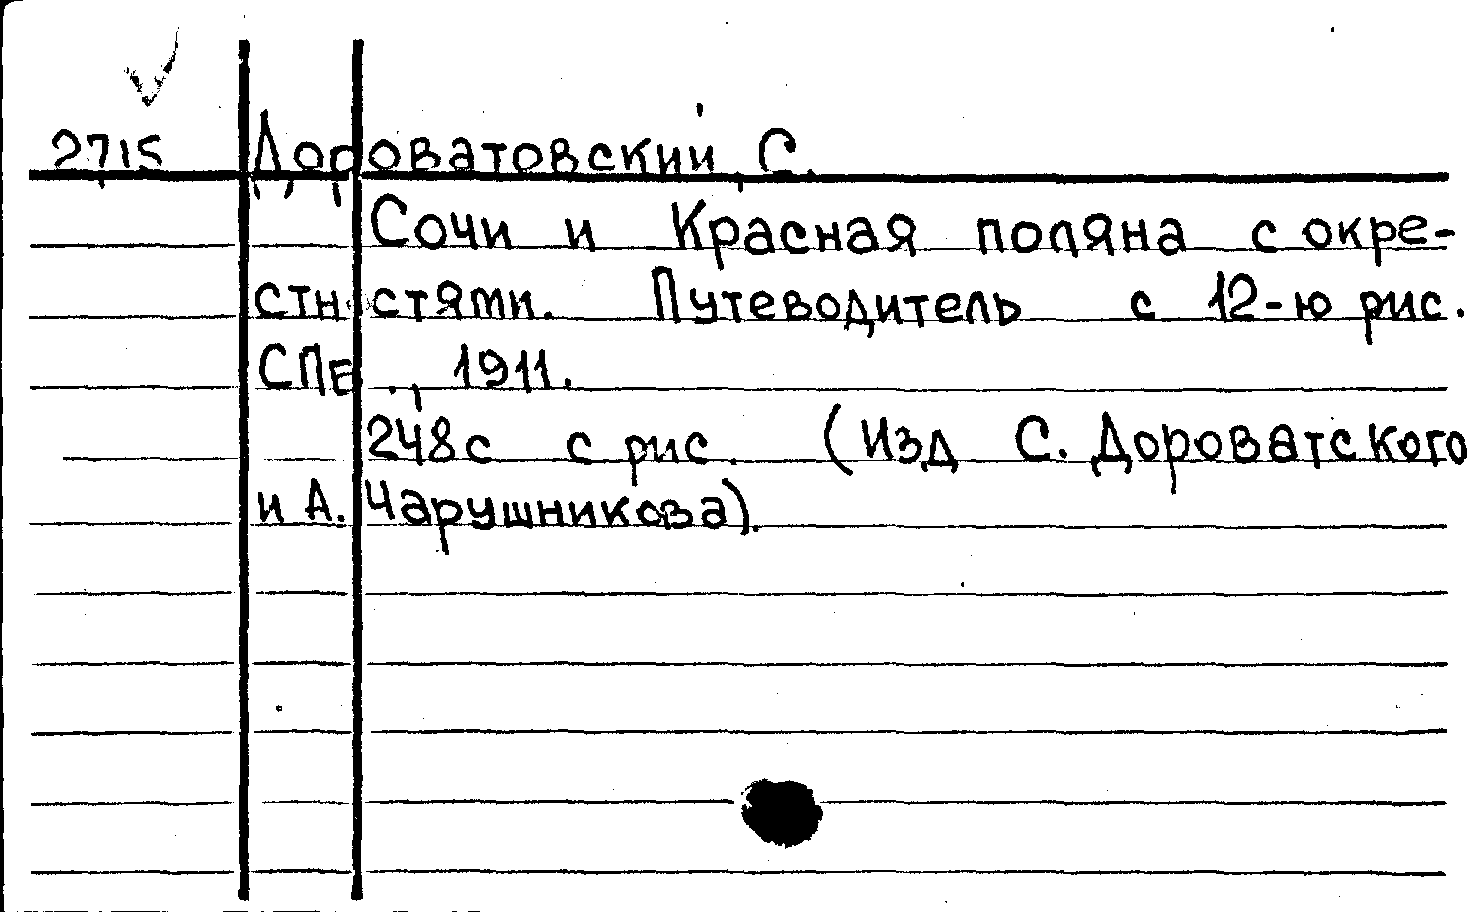 2715 Дороватовский, С.
Сочи и Красная поляна с окре-
стностями. Путеводитель с 12-ю рис.
СПБ., 1911.
248с с рис. (Изд С. Дороватского
и А. Чарушникова).